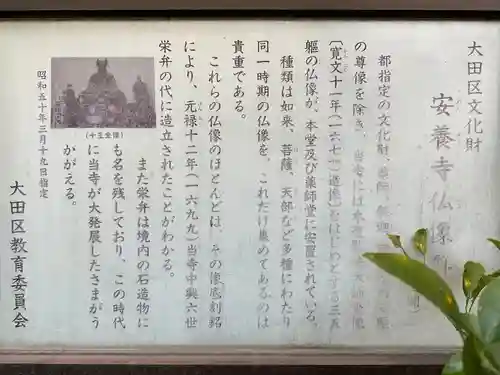 大田区文化財
安養寺仏像
都指定の文化財、薬師、釈迦
の尊像を除き、当寺には木造
〔寛文十一年(一六七一)造像〕をはじめとする三五
躯の仏像が、本堂及び薬師堂に安置されている。
種類は如来、菩薩、天部など多種にわたり
同一時期の仏像を、これだけ集めてあるのは
貴重である。
これらの仏像のほとんどは、その像底刻銘
により、元禄十二年(一六九九)当寺中興六世
栄弁の代に造立されたことがわかる。
また栄弁は境内の石造物に
も名を残しており、この時代
に当寺が大発展したさまがう
かがえる。
(十王坐像)
昭和五十年三月十九日指定
大田区教育委員会